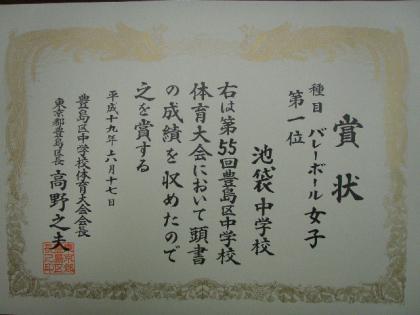 賞状
種目 バレーボール女子
第一位
池袋中学校
右は第55回豊島区中学校
体育大会において頭書
の成績を収めたので
之を賞する
平成十九年六月十七日
豊島区中学校体育大会会長
東京都豊島区長 高野之夫